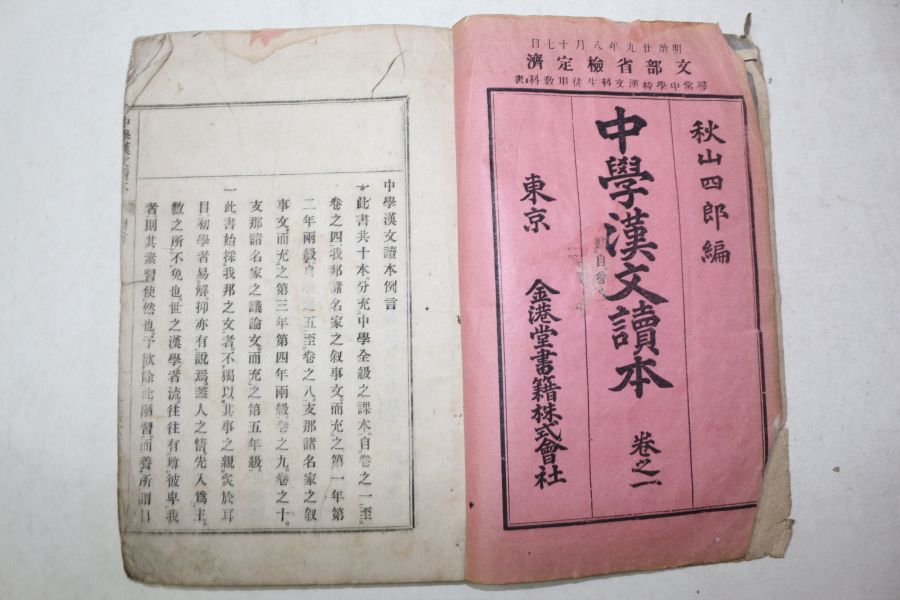 明治廿九年八月十七日
文部省檢定濟
尋常中學校漢文科生徒用教科書
秋山四郎編
中學漢文讀本
卷之一
東京
金港堂書籍株式會社
中學漢文讀本例言
一此書共十本。分充中學全級之課本。自卷之一至
卷之四。我邦諸名家之敘事文。而充之第一年第
二年兩級。自卷之五至卷之八。支那諸名家之敘
事文。而充之第三年第四年兩級。卷之九。卷之十。
支那諸名家之議論文。而充之第五年級。
一此書始採我邦之文者。不獨以其事之親炙於耳
目。初學者易解。抑亦有說焉。蓋人之情先入爲主。
數之所不免也。世之漢學者流。往往有尊彼卑我
者。則其素習使然也。予欲除此陋習。而養所謂日